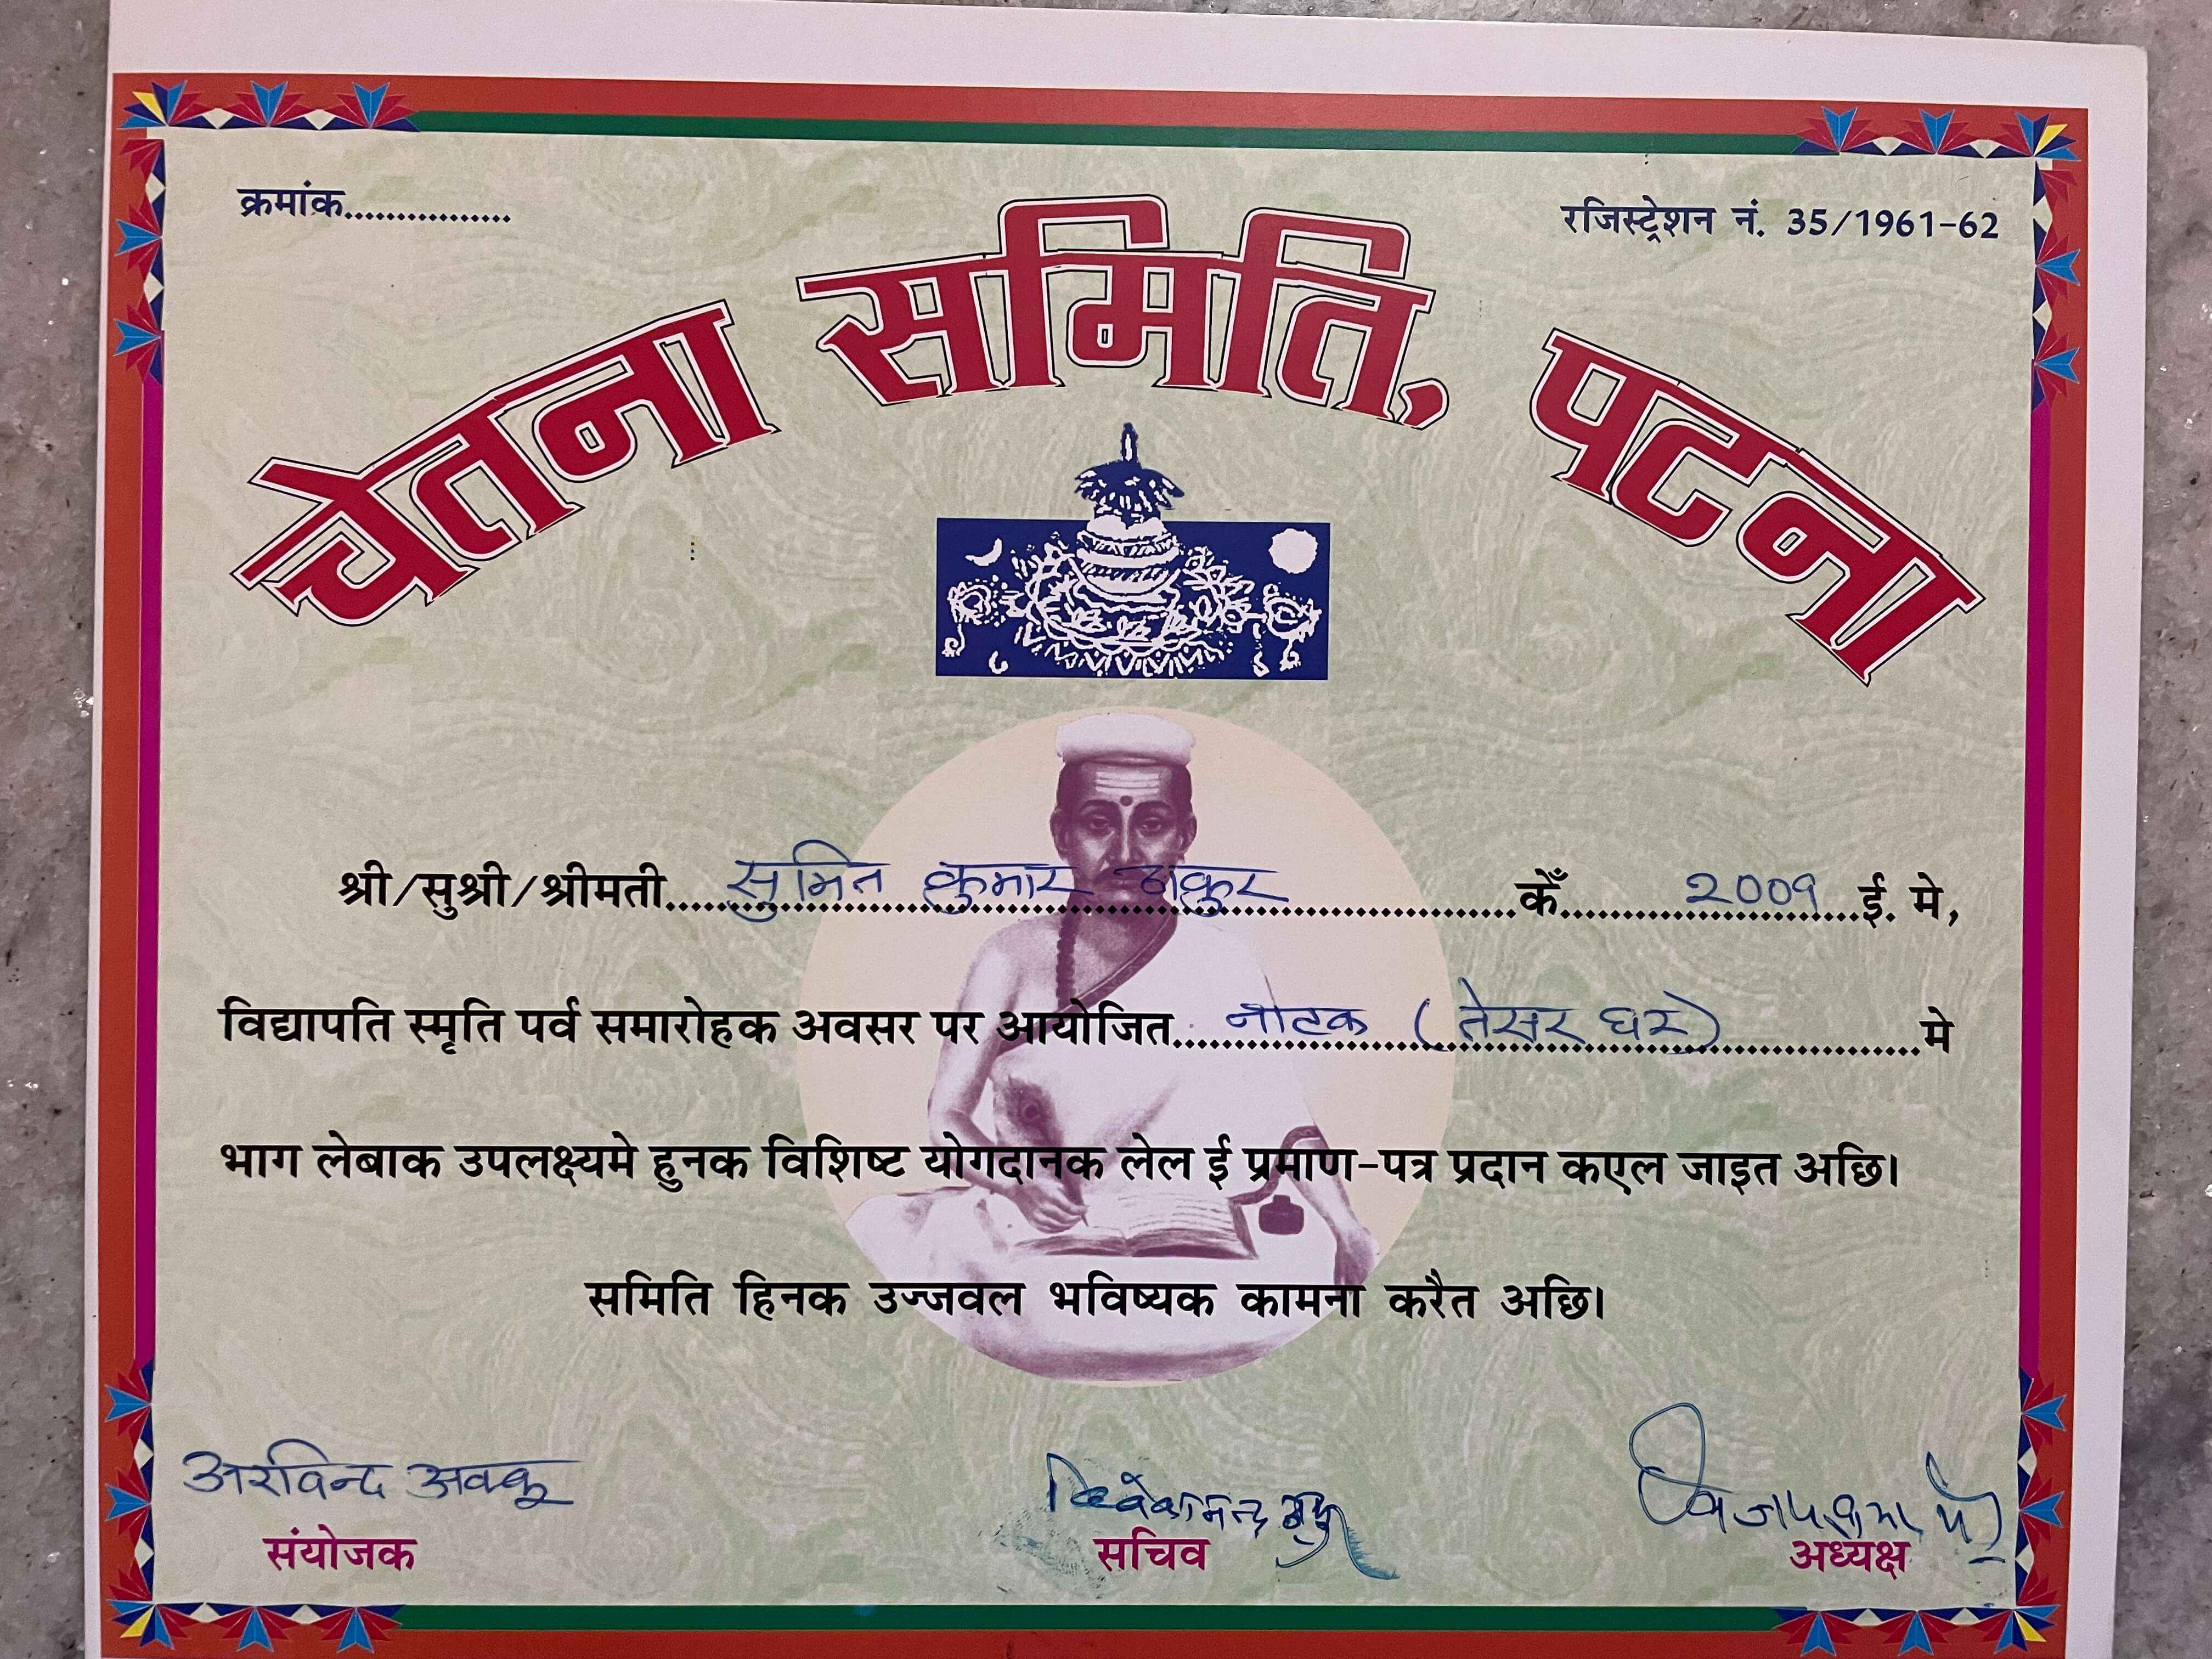 क्रमांक................
रजिस्ट्रेशन नं. 35/1961-62
चेतना समिति, पटना
श्री/सुश्री/श्रीमती.....सुमित कुमार ठाकुर.....केँ.....2009.....ई. मे,
विद्यापति स्मृति पर्व समारोहक अवसर पर आयोजित.....नाटक (तेसर घर).....मे
भाग लेबाक उपलक्ष्यमे हुनक विशिष्ट योगदानक लेल ई प्रमाण-पत्र प्रदान कएल जाइत अछि।
समिति हिनक उज्जवल भविष्यक कामना करैत अछि।
अरविन्द अक्कू
विवेकानन्द
संयोजक
सचिव
अध्यक्ष